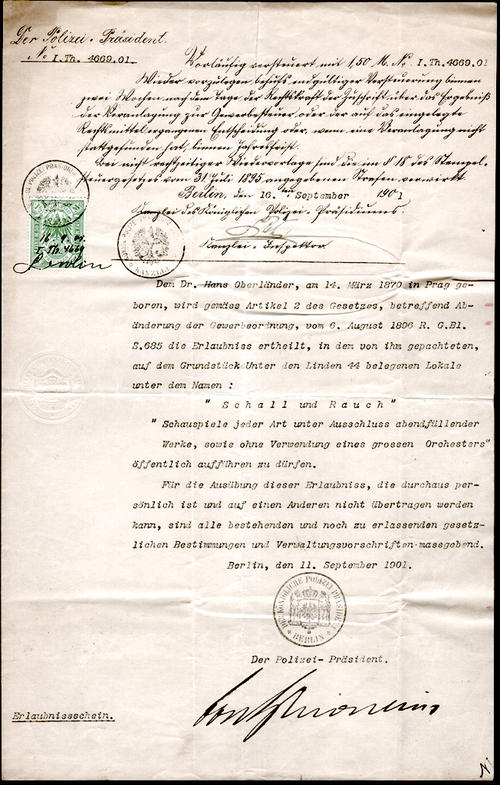 Der Polizei-Präsident.
No I.Th. 4669.01
Vorläufig versteuert mit 1,50 M. No I.Th.4669.01
Wieder vorzulegen behufs endgültiger Versteuerung binnen
zwei Wochen nach dem Tage der Rechtskraft der Zuschrift über das Ergebniß
der Veranlagung zur Gewerbesteuer oder der auf das eingelegte
Rechtsmittel ergangenen Entscheidung oder, wenn eine Veranlagung nicht
stattgefunden hat, binnen Jahresfrist.
Bei nicht rechtzeitiger Wiedervorlage sind die im § 18 des Stempel-
steuergesetzes vom 31 Juli 1895 angegebenen Strafen verwirkt
Berlin, den 16. ten September 1901
Kanzlei des Königlichen Polizei-Präsidiums.
Kanzlei-Inspektor
KANZLEI
16.9.01
I.Th.4669
Berlin
Dem Dr. Hans Oberländer, am 14. März 1870 in Prag ge-
boren, wird gemäss Artikel 2 des Gesetzes, betreffend Ab-
änderung der Gewerbeordnung, vom 6. August 1896 R.G.Bl.
S.685 die Erlaubniss ertheilt, in dem von ihm gepachteten,
auf dem Grundstück Unter den Linden 44 belegenen Lokale
unter dem Namen :
" Schall und Rauch"
" Schauspiele jeder Art unter Ausschluss abendfüllender
Werke, sowie ohne Verwendung eines grossen Orchesters"
öffentlich aufführen zu dürfen.
Für die Ausübung dieser Erlaubniss, die durchaus per-
sönlich ist und auf einen Anderen nicht übertragen werden
kann, sind alle bestehenden und noch zu erlassenden gesetz-
lichen Bestimmungen und Verwaltungsvorschriften massgebend.
Berlin, den 11. September 1901.
DER KÖNIGLICHE POLIZEI-PRÄSIDENT
* BERLIN *
Der Polizei-Präsident.
Erlaubnisschein.